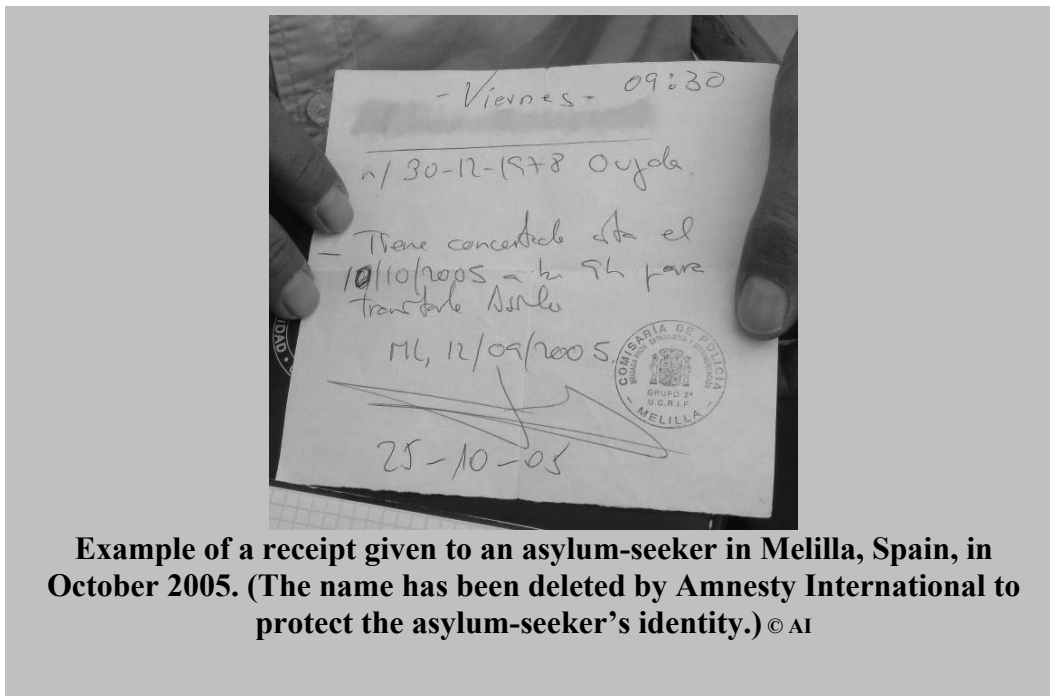 - Viernes - 09:30
n/ 30-12-1978 Oujda.
- Tiene concertada cita el
10/10/2005 a las 9h para
tramitarle Asilo
ML, 12/09/2005.
COMISARÍA DE POLICIA
GRUPO 2º
U.C.R.I.F.
- MELILLA -
25-10-05
IDAD
Example of a receipt given to an asylum-seeker in Melilla, Spain, in
October 2005. (The name has been deleted by Amnesty International to
protect the asylum-seeker's identity.) © AI